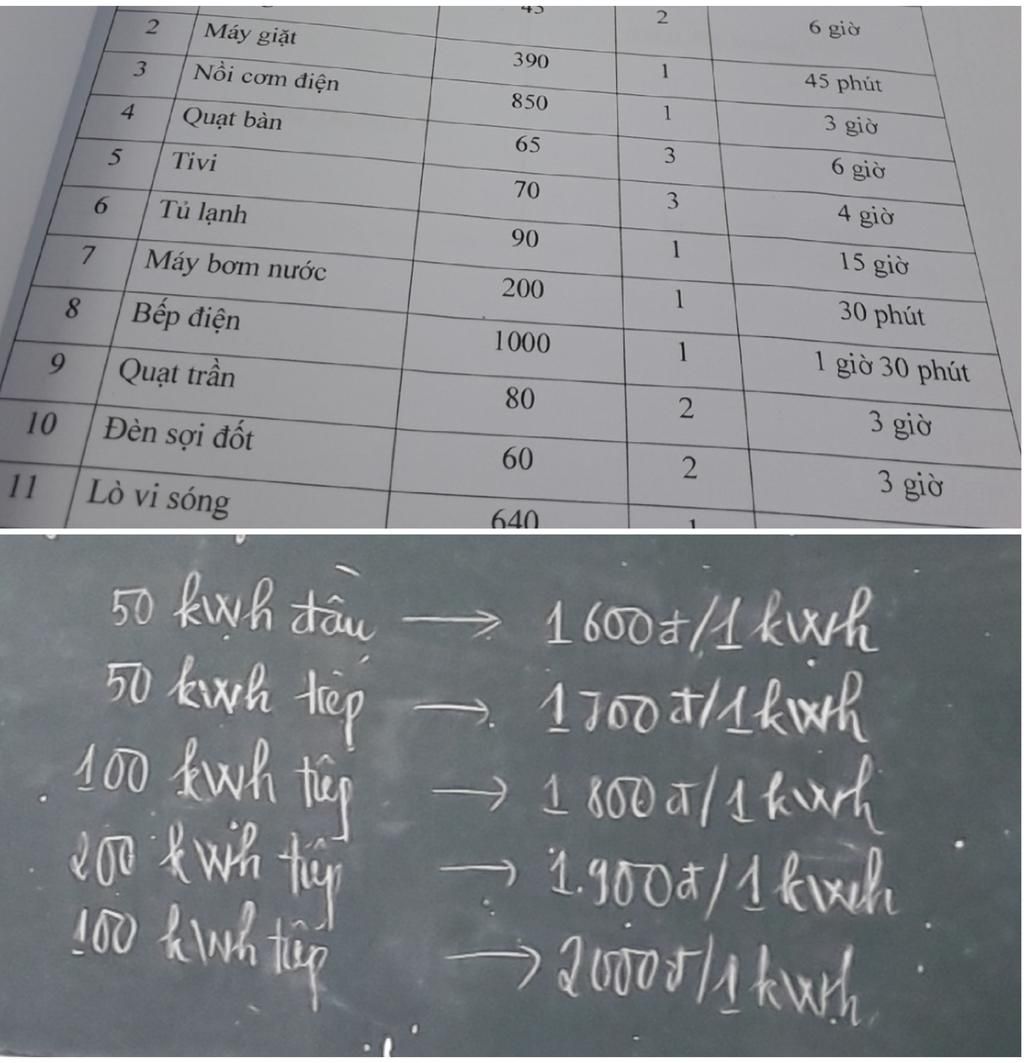 45 2 6 giờ
2 Máy giặt 390 1 45 phút
3 Nồi cơm điện 850 1 3 giờ
4 Quạt bàn 65 3 6 giờ
5 Tivi 70 3 4 giờ
6 Tủ lạnh 90 1 15 giờ
7 Máy bơm nước 200 1 30 phút
8 Bếp điện 1000 1 1 giờ 30 phút
9 Quạt trần 80 2 3 giờ
10 Đèn sợi đốt 60 2 3 giờ
11 Lò vi sóng 640 1
50 kwh đầu → 1600đ/1 kwh
50 kwh tiếp → 1700đ/1kwh
100 kwh tiếp → 1800đ/1kwh
200 kwh tiếp → 1.900đ/1kwh
100 kwh tiếp → 2000đ/1kwh